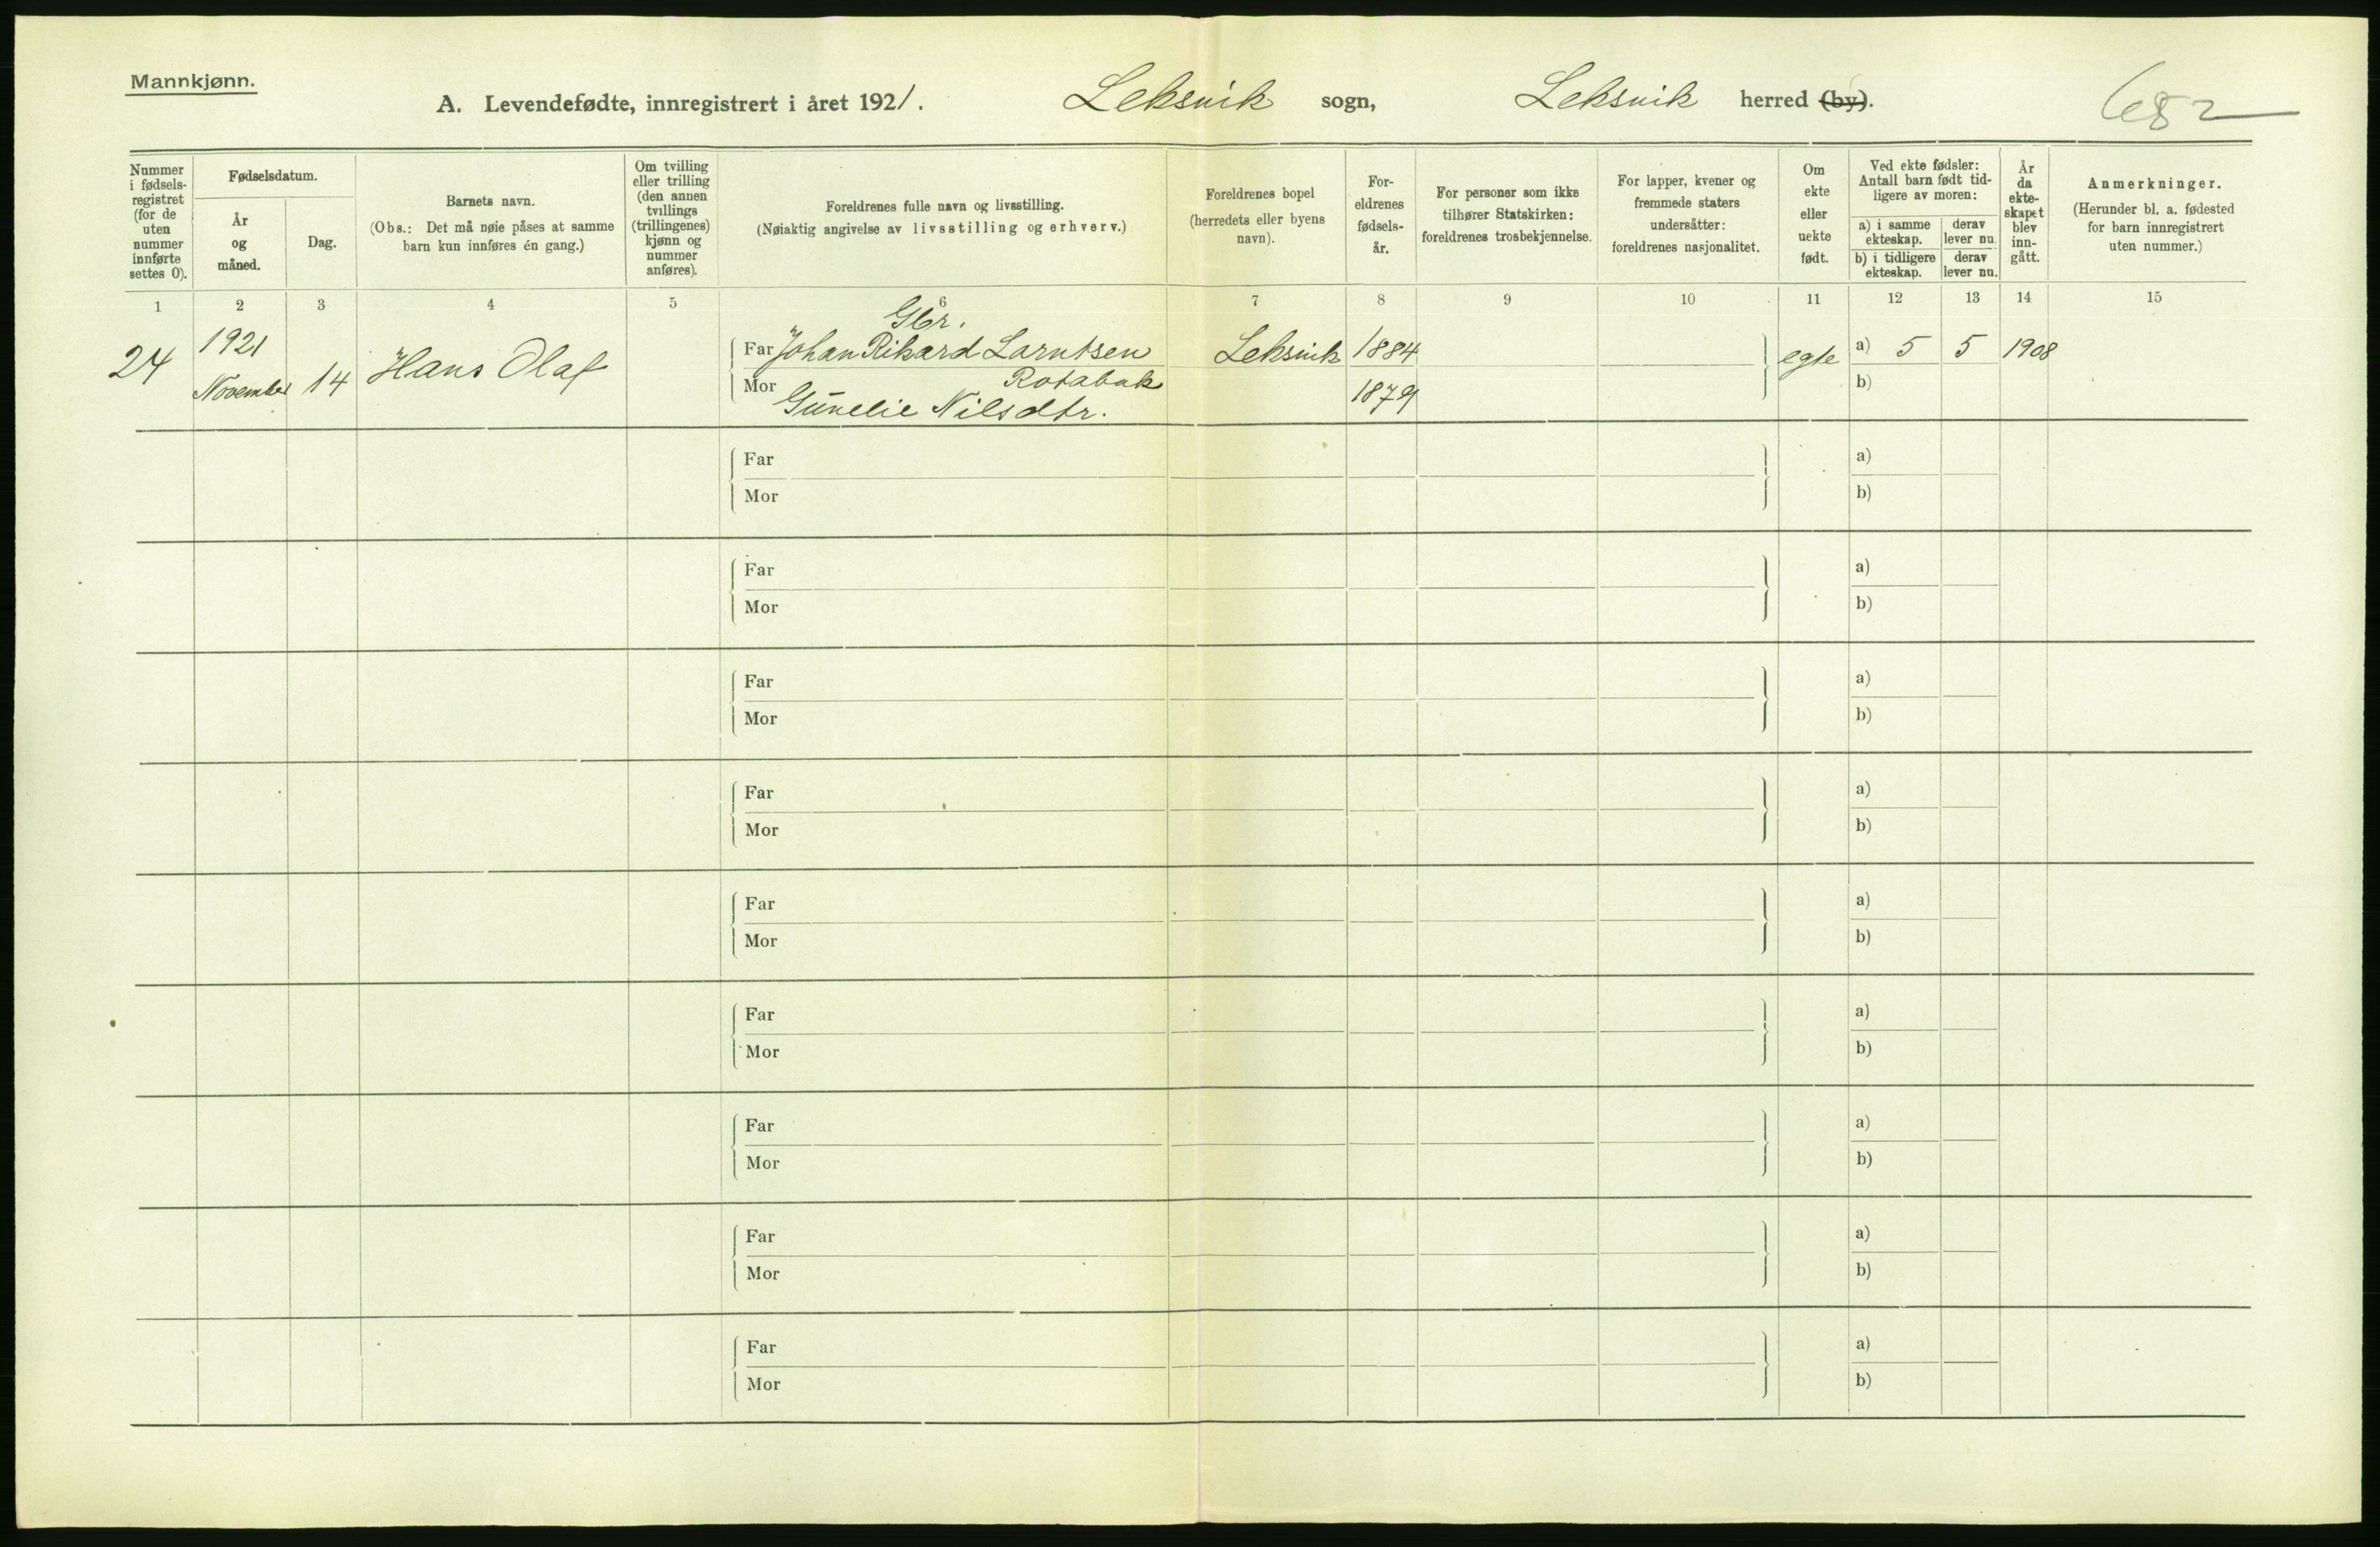 Mannkjønn.
A. Levendefødte, innregistrert i året 1921. Leksvik sogn, Leksvik herred (by). 682
Nummer i fødsels-registret (for de uten nummer innførte settes 0).
Fødselsdatum.
År og måned.
Dag.
Barnets navn.
(Obs.: Det må nøie påses at samme barn kun innføres én gang.)
Om tvilling eller trilling (den annen tvillings (trillingenes) kjønn og nummer anføres).
Foreldrenes fulle navn og livsstilling.
(Nøiaktig angivelse av livsstilling og erhverv.)
Foreldrenes bopel (herredets eller byens navn).
For-eldrenes fødsels-år.
For personer som ikke tilhører Statskirken: foreldrenes trosbekjennelse.
For lapper, kvener og fremmede staters undersåtter: foreldrenes nasjonalitet.
Om ekte eller uekte født.
Ved ekte fødsler: Antall barn født tid-ligere av moren:
a) i samme ekteskap.
derav lever nu.
b) i tidligere ekteskap.
derav lever nu.
År da ekte-skapet blev inn-gått.
Anmerkninger.
(Herunder bl. a. fødested for barn innregistrert uten nummer.)
1 2 3 4 5 6 7 8 9 10 11 12 13 14 15
Gbr.
24 1921 November 14 Hans Olaf
Far Johan Rikard Larntsen Leksvik 1884 egte a) 5 5 1908
Rotabak
Mor Gunelie Nilsdtr. 1879 b)
Far a)
Mor b)
Far a)
Mor b)
Far a)
Mor b)
Far a)
Mor b)
Far a)
Mor b)
Far a)
Mor b)
Far a)
Mor b)
Far a)
Mor b)
Far a)
Mor b)